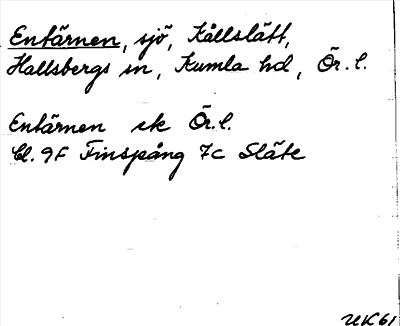 Entärnen, sjö, Kållslätt,
Hallsbergs sn, Kumla hd, Ör. l.
Entärnen ek Ör. l.
Bl. 9F Finspång 7c Släte
UK 61